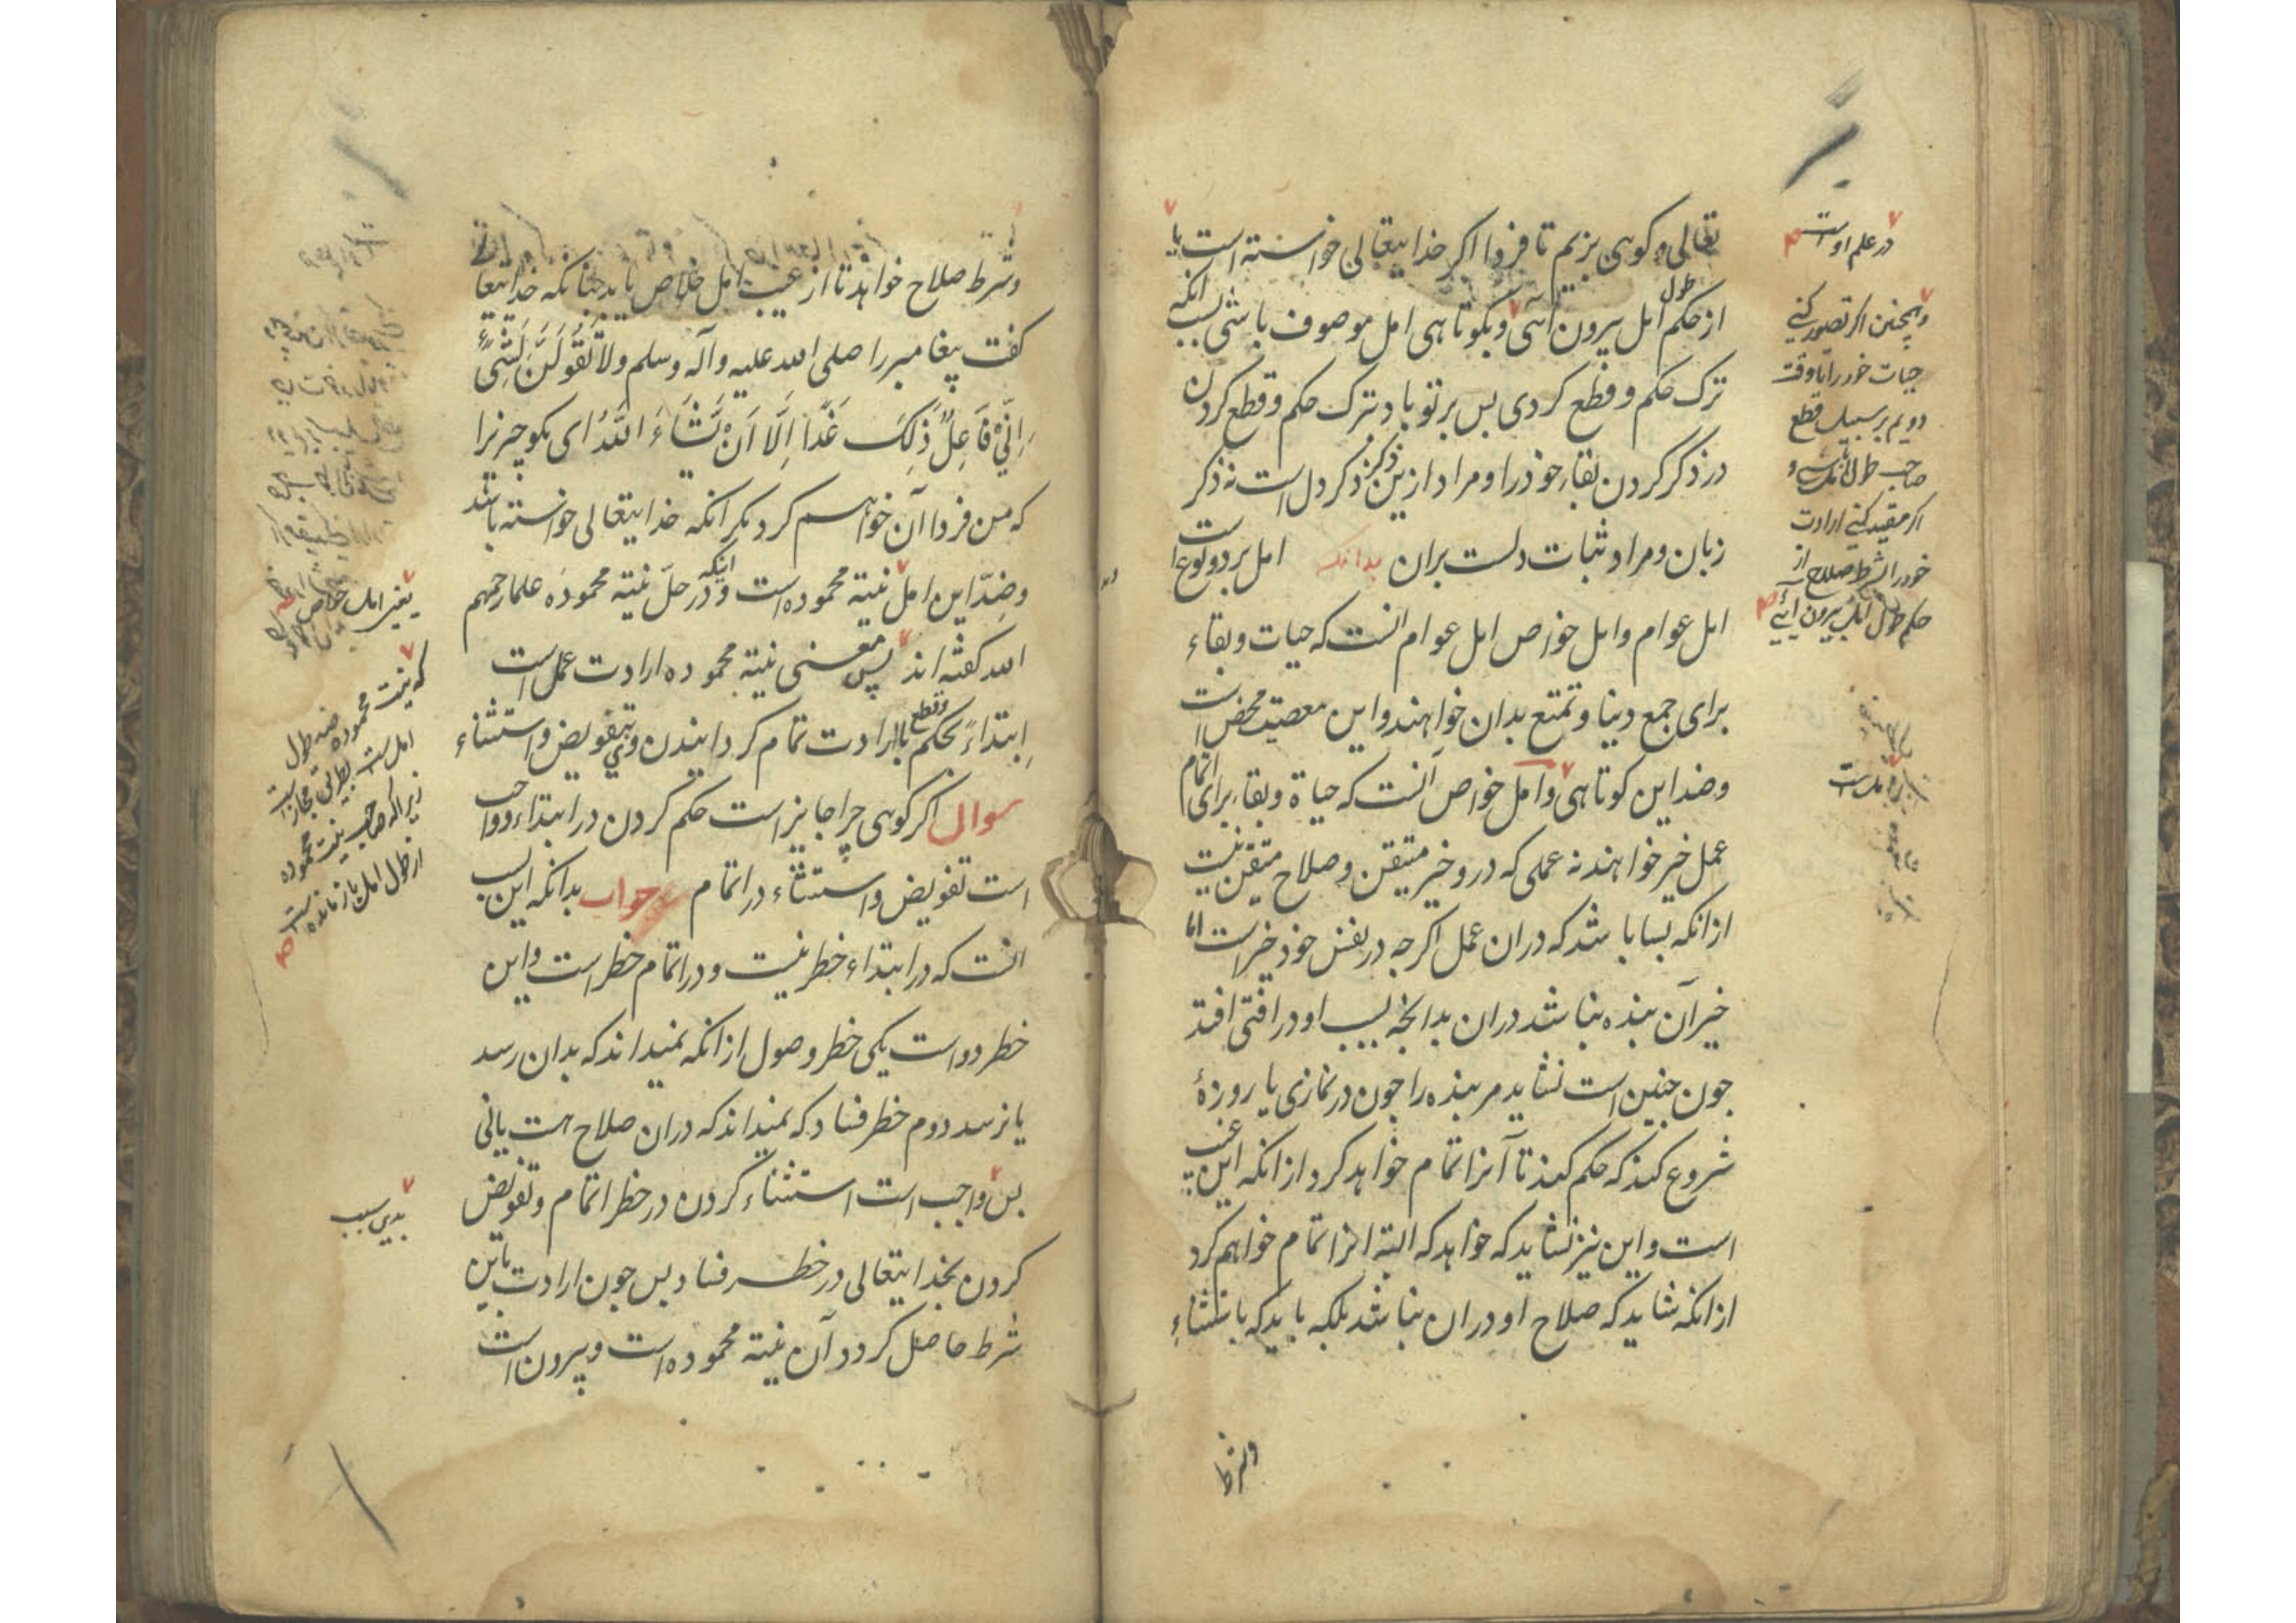 تعالی و کوئی بزیم تا فردا اکر خدایتعالی خواسته است یا
در علم اوست
از حکم طول امل بیرون آئی و بکوتاهی امل موصوف باشی بسبب انکه
ترک حکم و قطع کردی بس بر تو باد بترک حکم و قطع کردن
در ذکر کردن بقاء خود را و مراد ازین ذکر ذکر دل است نه ذکر
زبان و مراد ثبات دلست بران بدانکه امل بر دو نوع است
امل عوام و امل خواص امل عوام انست که حیات و بقاء
برای جمع دینا و تمتع بدان خواهند و این معصیت محض است
وضد این کوتاهی و امل خواص آنست که حیاة و بقاء برای اتمام
عمل خیر خواهند نه عملی که درو خیر متیقن و صلاح متیقن نیست
از انکه بسا باشد که دران عمل اکرچه در نفس خود خیر است اما
خیر آن بنده نباشد دران بدانچه بسبب او در افتی افتد
جون جنین است نشاید مر بنده را جون در نمازی یا روزۀ
شروع کند که حکم کند تا آنرا تمام خواهد کرد از انکه این غیب
است و این نیز نشاید که خواهد که البته انرا تمام خواهم کرد
از انکه شاید که صلاح او دران نباشد بلکه باید که باستثناء
وشرط
وهمچنین اکر تصور کنی
حیات خود را تا وقت
دویم بر سبیل قطع
صاحب طول املی و
اکر مقید کنی ارادت
خود را بشرط صلاح از
حکم طول امل بیرون آئی
وشرط صلاح خواهد تا از عیب امل خلاص یابد جنانکه خدایتعا
کفت پیغامبر را صلی الله علیه وآله وسلم وَلَا تَقُولَنَّ لِشَیْءٍ
اِنِّی فَاعِلٌ ذَلِکَ غَدًا اِلَّا اَنْ یَشَاءَ اللّٰهُ ای مکو چیزیرا
که من فردا آن خواهم کرد مکر انکه خدایتعالی خواسته باشد
وضدّ این امل نیته محموده است و اینکه در حلّ نیته محموده علما رحمهم
الله کفته اند پس معنی نیته محموده ارادت عمل است
ابتداءً بحکم و قطع با ارادت تمام کردانیدن وی بتفویض و استثناء
سوال اکر کوئی چرا جایز است حکم کردن در ابتداء و واجب
است تفویض و استثناء در اتمام جواب بدانکه این بسبب
انست که در ابتداء خطر نیست و در اتمام خطر است و این
خطر دو است یکی خطر وصول از انکه نمیداند که بدان رسد
یا نرسد دوم خطر فساد که نمیداند که دران صلاح هست یا نی
بس واجب است استثناء کردن در خطر اتمام و تفویض
کردن بخدایتعالی در خطر فساد بس جون ارادت باین
شرط حاصل کردد آن نیته محموده است و بیرون است
که نیت محموده ضد طول
امل است بطریق مجاز است
زیرا که صاحب نیت محموده
از طول امل باز مانده است
بدین سبب